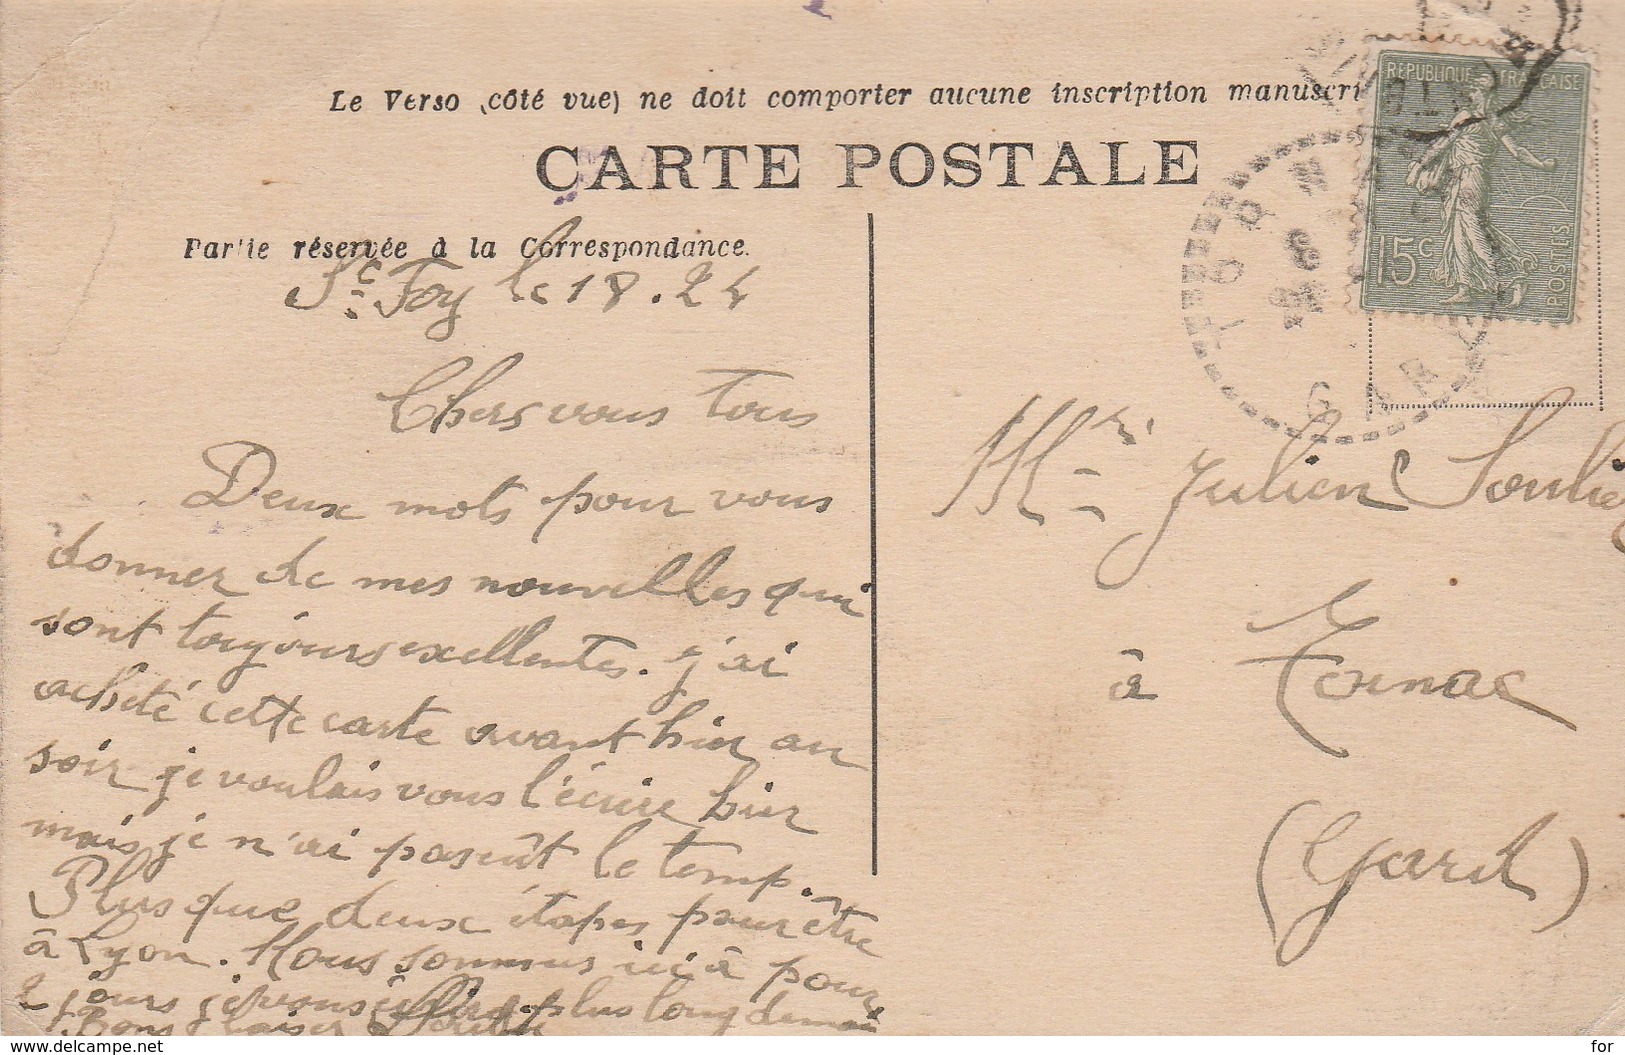 Le Verso (côté vue) ne doit comporter aucune inscription manuscri
CARTE POSTALE
Partie réservée à la Correspondance.
REPUBLIQUE FRANCAISE
15c
POSTES
GARD
Ste Foy le 18.24
Chers vous tous
Deux mots pour vous
donner de mes nouvelles qui
sont toujours exellentes. j'ai
acheté cette carte avant hier au
soir je voulais vous l'écrire hier
mais je n'ai pas eût le temp.
Plus que deux étapes pour être
à Lyon. Nous sommes ici à pour
2 jours je plus long demai
Bons baiser
Mr Julien Soulier
à Tornac
(Gard)
www.delcampe.net
for